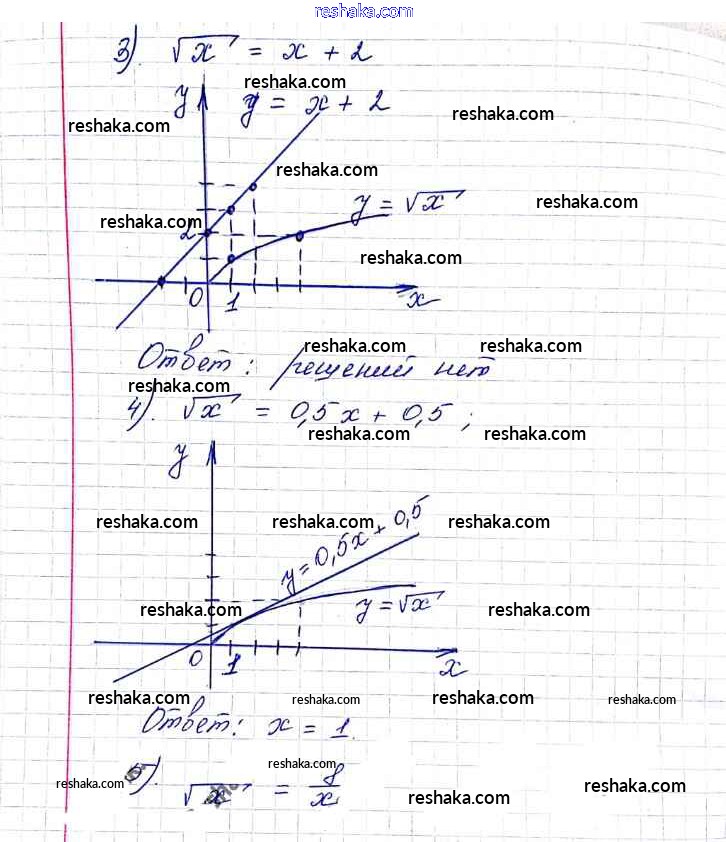 reshaka.com
3). √x = x + 2
reshaka.com
y y = x + 2
reshaka.com reshaka.com
reshaka.com
y = √x reshaka.com
reshaka.com
2
reshaka.com
0 1 x
reshaka.com reshaka.com
Ответ: решений нет
reshaka.com
4). √x = 0,5x + 0,5;
reshaka.com reshaka.com
y
y = 0,5x + 0,5
reshaka.com reshaka.com reshaka.com
reshaka.com y = √x reshaka.com
0 1 x
reshaka.com reshaka.com reshaka.com reshaka.com
Ответ: x = 1.
reshaka.com
5). √x = 8/x
reshaka.com reshaka.com reshaka.com